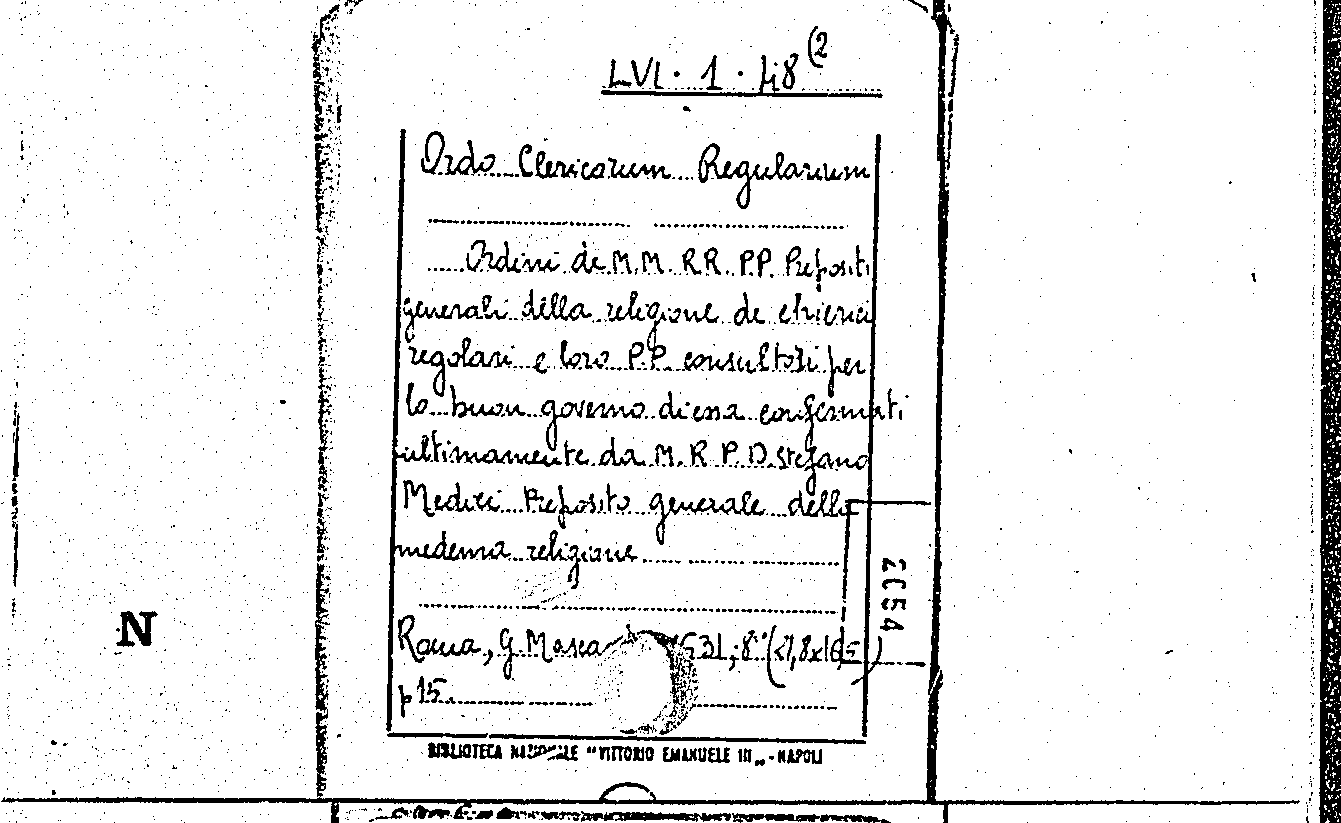 LVI · 1 · 48 (2
Ordo Clericorum Regularium
Ordini de M.M. RR. PP. Prepositi
generali della religione de chierici
regolari e loro P.P. consultori per
lo buon governo di essa confermati
ultimamente da M. R. P. D. Stefano
Medici Preposito generale della
medema religione
2054
N
Roma, G. Masca 631, ; 8°
p 15.
BIBLIOTECA NAZIONALE "VITTORIO EMANUELE III" - NAPOLI